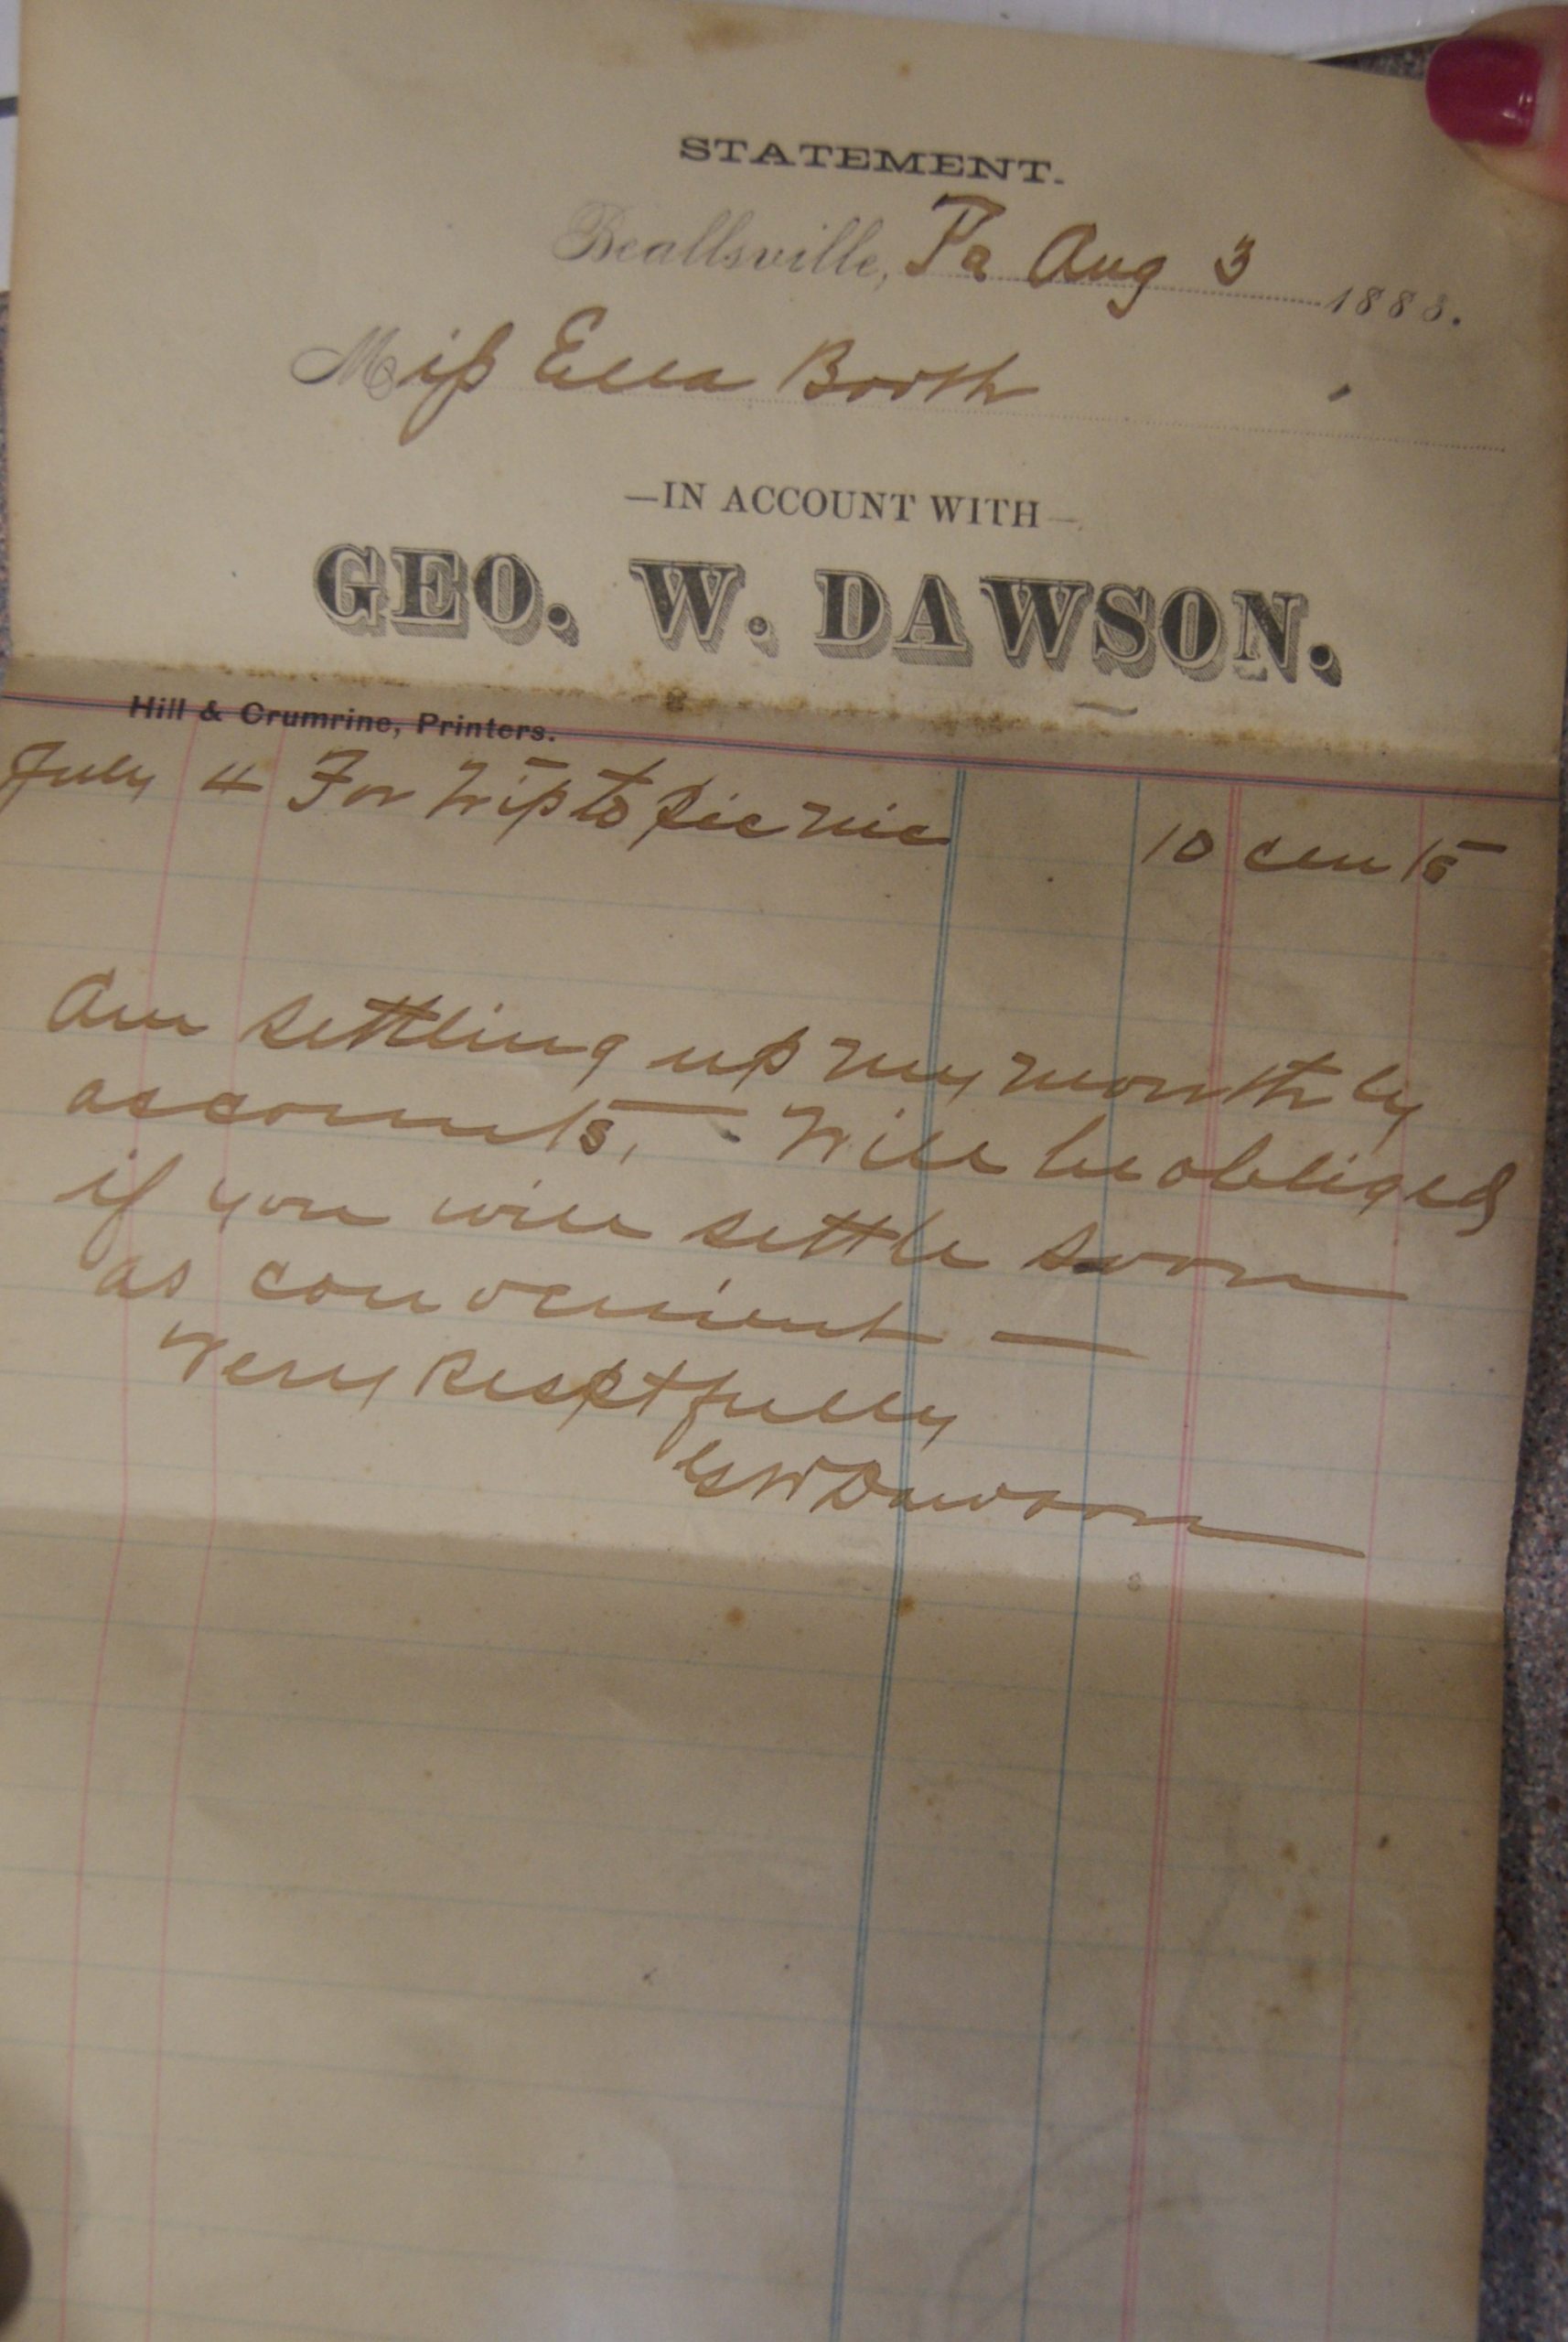 STATEMENT.
Beallsville, Pa Aug 3 1888.
Miſs Ella Booth
—IN ACCOUNT WITH—
GEO. W. DAWSON.
Hill & Crumrine, Printers.
July 4 For Trip to Pic Nic 10 cents
Am settling up my monthly
accounts, — Will be obliged
if you will settle soon
as convenient —
Very Resptfully
GW Dawson